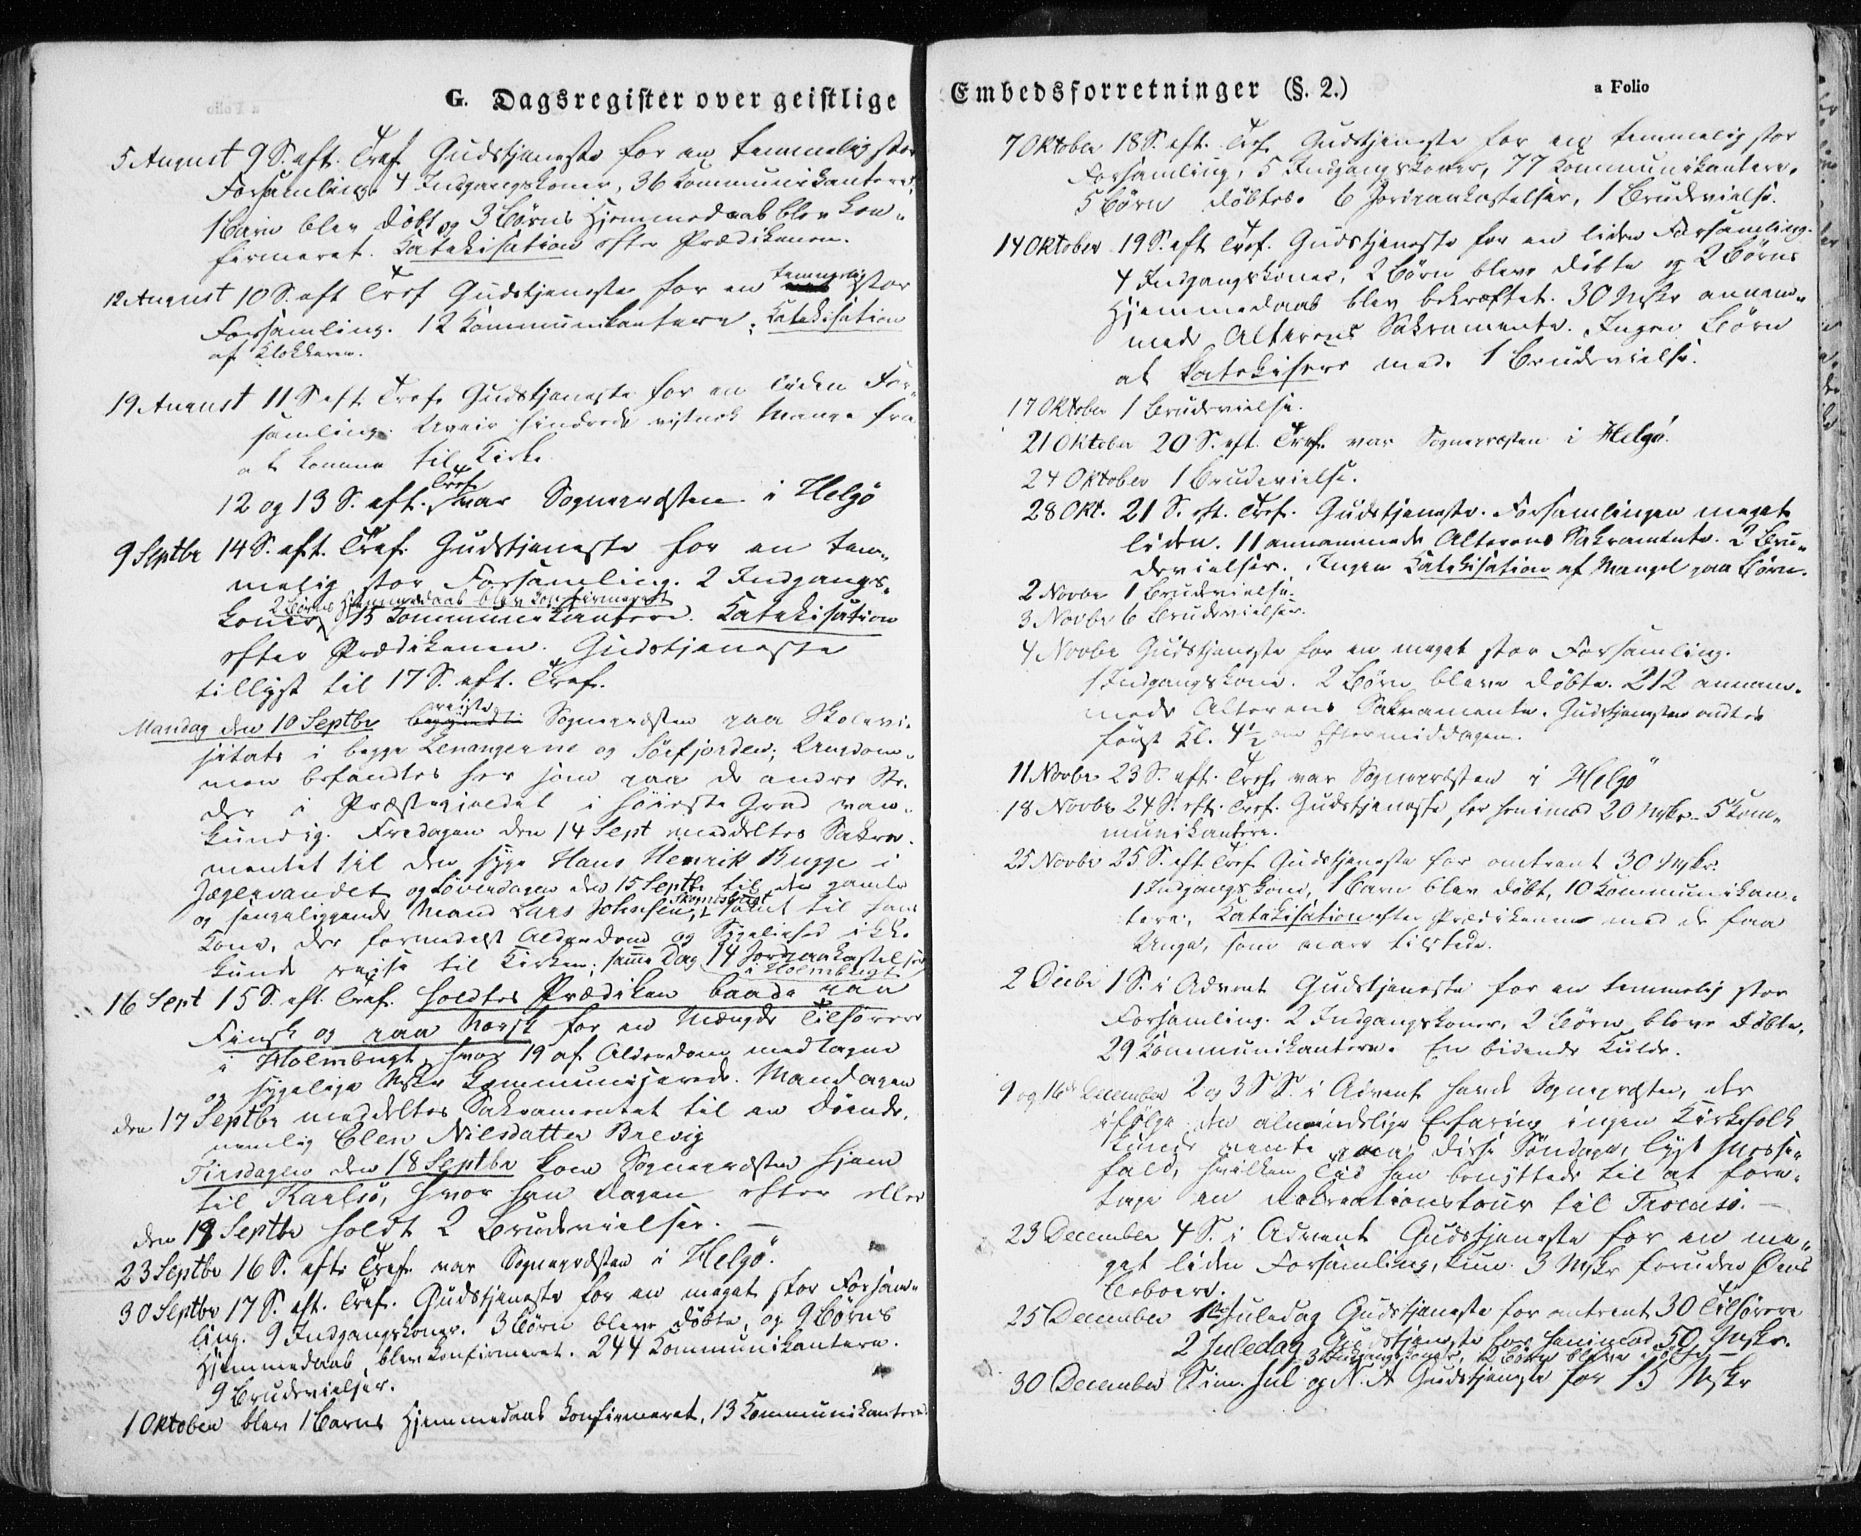 G. Dagsregister over geistlige
5 August 9 S. eft. Tref. Gudstjeneste for en temmelig stor
Forsamling. 4 Indgangskoner, 36 Kommunikantere,
1 Barn blev døbt og 3 Børns Hjemmedaab blev kon-
firmeret. Katekisation efter Prædikenen.
12 August 10 S. eft Tref Gudstjeneste for en temmelig stor
Forsamling. 12 Kommunikantere; Katekisation
af Klokkeren.
19 August 11 S. eft. Tref. Gudstjeneste for en liden For-
samling. Uveir hindrede vistnok Mange fra
at komme til Kirke.
12 og 13 S. eft. Tref. var Sognepræsten i Helgö
9 Septbr 14 S. eft. Tref. Gudstjeneste for en tem-
melig stor Forsamling. 2 Indgangs-
2 Børns Hjemmedaab blev konfirmeret
koner, 15 Kommunikantere. Katekisation
efter Prædikenen. Gudstjeneste
tillyst til 17 S. eft. Tref.
Mandag den 10 Septbr reiste Sognepræsten paa Skolevi-
sitats i begge Lenangerne og Sörfjorden; Ungdom-
men befandtes her som paa de andre Ste-
der i Præstegieldet i høieste Grad van-
kundig. Fredagen den 14 Sept meddeltes Sakra-
mentet til den syge Hans Henrik Bugge i
Jægervandet og Løverdagen den 15 Septbr til den gamle
og sengeliggende Mand Lars Johnsen, samt til hans
Kone, der formedelst Alderdom og Sygelighed ikke
kunde reise til Kirken; samme Dag 14 Jordpaakastelser
i Holmbugt
16 Sept 15 S. eft. Tref. holdtes Prædiken baade paa
Finsk og paa Norsk for en Mængde Tilhørere
i Holmbugt, hvor 19 af Alderdom medtagne
og sygelige Msker kommunicerede. Mandagen
den 17 Septbr meddeltes Sakramentet til en døende,
nemlig Elen Nilsdatter Brevig
Tirsdagen den 18 Septbr kom Sognepræsten hjem
til Karlsö, hvor han Dagen efter eller
den 19 Septbr holdt 2 Brudevielser. —
23 Septbr 16 S. eft. Tref. var Sognepræsten i Helgö.
30 Septbr 17 S. eft. Tref. Gudstjeneste for en meget stor Forsam-
ling. 9 Indgangskoner. 3 Børn bleve døbte, og 9 Børns
Hjemmedaab blev konfirmeret. 244 Kommunikantere.
9 Brudevielser.
1 Oktober blev 1 Barns Hjemmedaab konfirmeret, 13 Kommunikantere
Embedsforretninger (§. 2.)
a Folio
7 Oktober 18 S. eft. Tref. Gudstjeneste for en temmelig stor
Forsamling, 5 Indgangskoner, 77 Kommunikantere.
5 Børn døbtes. 6 Jordpaakastelser, 1 Brudevielse.
14 Oktober 19 S. eft Tref. Gudstjeneste for en liden Forsamling.
4 Indgangskoner, 2 Børn bleve døbte og 2 Børns
Hjemmedaab blev bekræftet. 30 Mskr annam-
mede Alterens Sakramente. Ingen Børn
at katekisere med. 1 Brudevielse.
17 Oktober 1 Brudevielse.
21 Oktober 20 S. eft. Tref. var Sognepræsten i Helgö.
24 Oktober 1 Brudevielse.
28 Okt. 21 S. eft. Tref. Gudstjeneste. Forsamlingen meget
liden. 11 annammede Alterens Sakramente. 2 Bru-
devielser. Ingen Katekisation af Mangel paa Børn.
2 Novbr 1 Brudevielse.
3 Novbr 6 Brudevielser.
4 Novbr Gudstjeneste for en meget stor Forsamling.
1 Indgangskone. 2 Børn bleve døbte. 212 annam-
mede Alterens Sakramente. Gudstjenesten endtes
først Kl. 4½ om Eftermiddagen.
11 Novbr 23 S. eft. Tref. var Sognepræsten i Helgö
18 Novbr 24 S. eft. Tref. Gudstjeneste for henimod 20 Mskr. 5 Kom-
munikantere.
25 Novbr 25 S. eft. Tref Gudstjeneste for omtrent 30 Mskr.
1 Indgangskone, 1 Barn blev døbt, 10 Kommunikan-
tere, Katekisation efter Prædikenen med de faa
Unge, som vare tilstede.
2 Decbr 1 S. i Advent Gudstjeneste for en temmelig stor
Forsamling. 2 Indgangskoner, 2 Børn bleve døbte.
29 Kommunikantere. En bidende Kulde.
9 og 16de December 2 og 3 S S. i Advent havde Sognepræsten, der
ifølge den almindelige Erfaring ingen Kirkefolk
kunde vente paa disse Søndage, lyst Messe-
fald, hvilken Tid han benyttede til at fore-
tage en Rekreationstour til Tromsö. —
23 December 4 S. i Advent Gudstjeneste for en me-
get liden Forsamling, kun 3 Mskr foruden Øens
Beboere.
25 December 1ste Juledag Gudstjeneste for omtrent 30 Tilhørere
2 Juledag Gudstjeneste for henimod 50 Mskr.
3 Indgangskoner, 2 Børn bleve døbte
30 December S. im. Jul og N. A Gudstjeneste for 15 Mskr